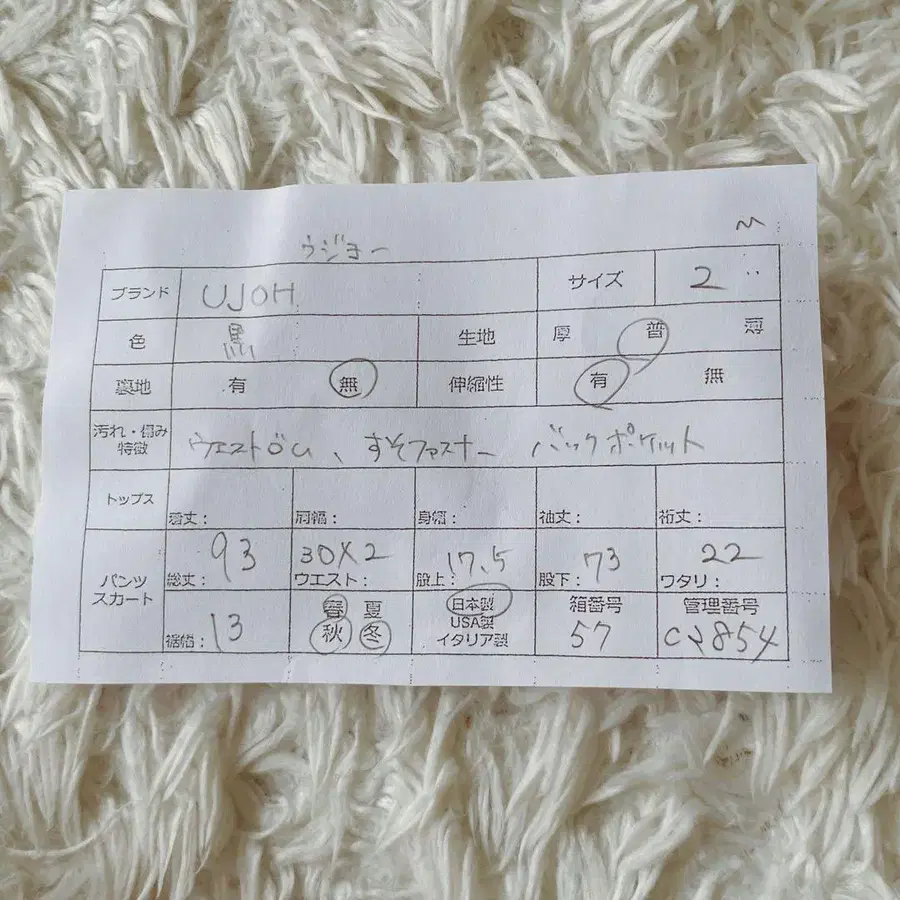 ウジョー M
ブランド UJOH サイズ 2
色 黒 生地 厚 普 薄
裏地 有 無 伸縮性 有 無
汚れ・傷み
特徴 ウエストゴム、すそファスナー バックポケット
トップス 着丈: 肩幅: 身幅: 袖丈: 裄丈:
93 30X2 17.5 73 22
パンツ
スカート 総丈: ウエスト: 股上: 股下: ワタリ:
春 夏 日本製 箱番号 管理番号
USA製
裾幅: 13 秋 冬 イタリア製 57